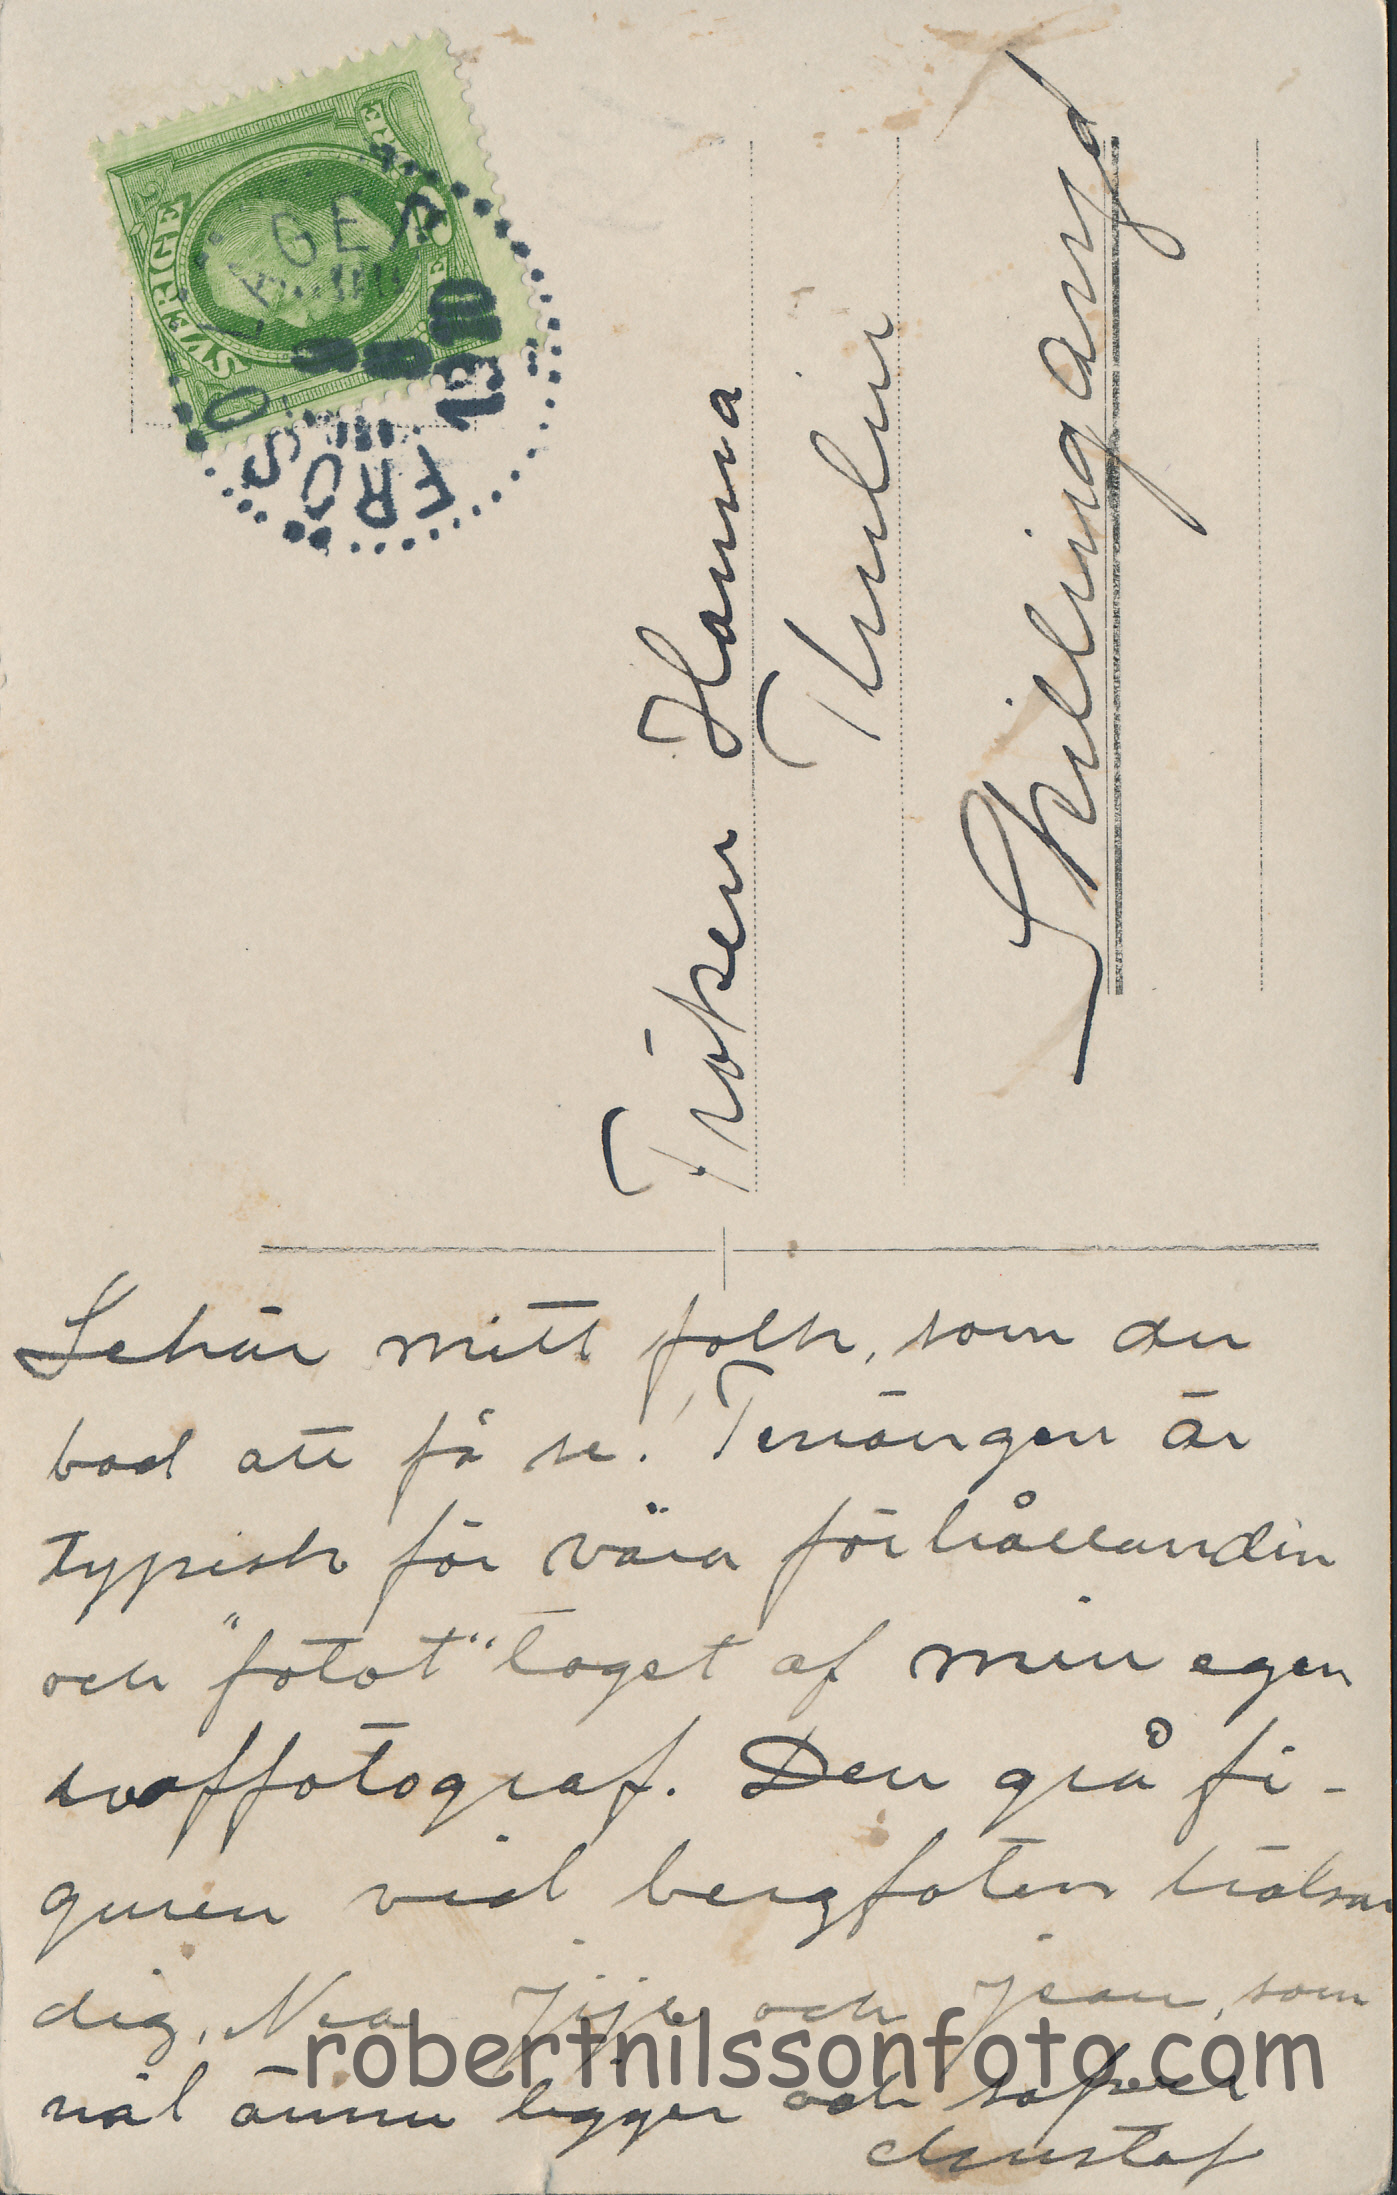 SVERIGE
FRÖSÖ LÄGER
Fröken Hanna
Thulin
Skillingaryd
Sehär mitt folk, som du
bad att få se! Terrängen är
typisk för våra förhållanden
och "fotot" taget af min egen
hoffotograf. Den grå fi-
guren vid bergfoten hälsar
dig, Nea Jije och Jean, som
väl ännu ligger och sofver
Gustaf
robertnilssonfoto.com